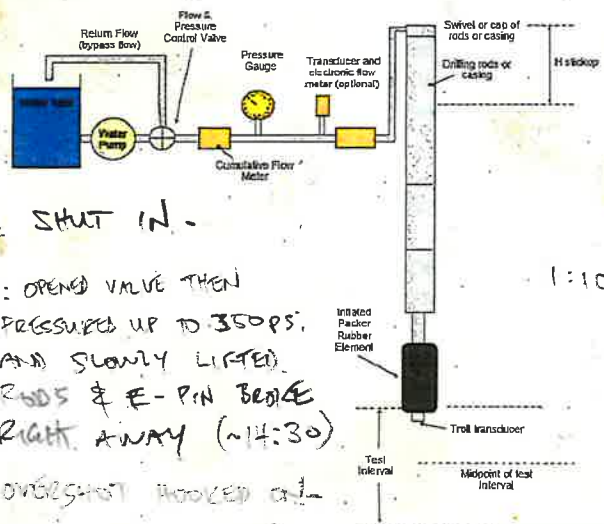 Flow &
Pressure
Control Valve
Return Flow
(bypass flow)
Pressure
Gauge
Transducer and
electronic flow
meter (optional)
Swivel or cap of
rods or casing
Drilling rods or
casing
H stickup
Water Tank
Water
Pump
Cumulative Flow
Meter
SHUT IN.
: OPENED VALVE THEN
PRESSURED UP TO 350PS.
AND SLOWLY LIFTED
RODS & E-PIN BROKE
RIGHT AWAY (~14:30)
OVERSHOT HOOKED
1:10
Inflated
Packer
Rubber
Element
Troll transducer
Test
Interval
Midpoint of test
interval